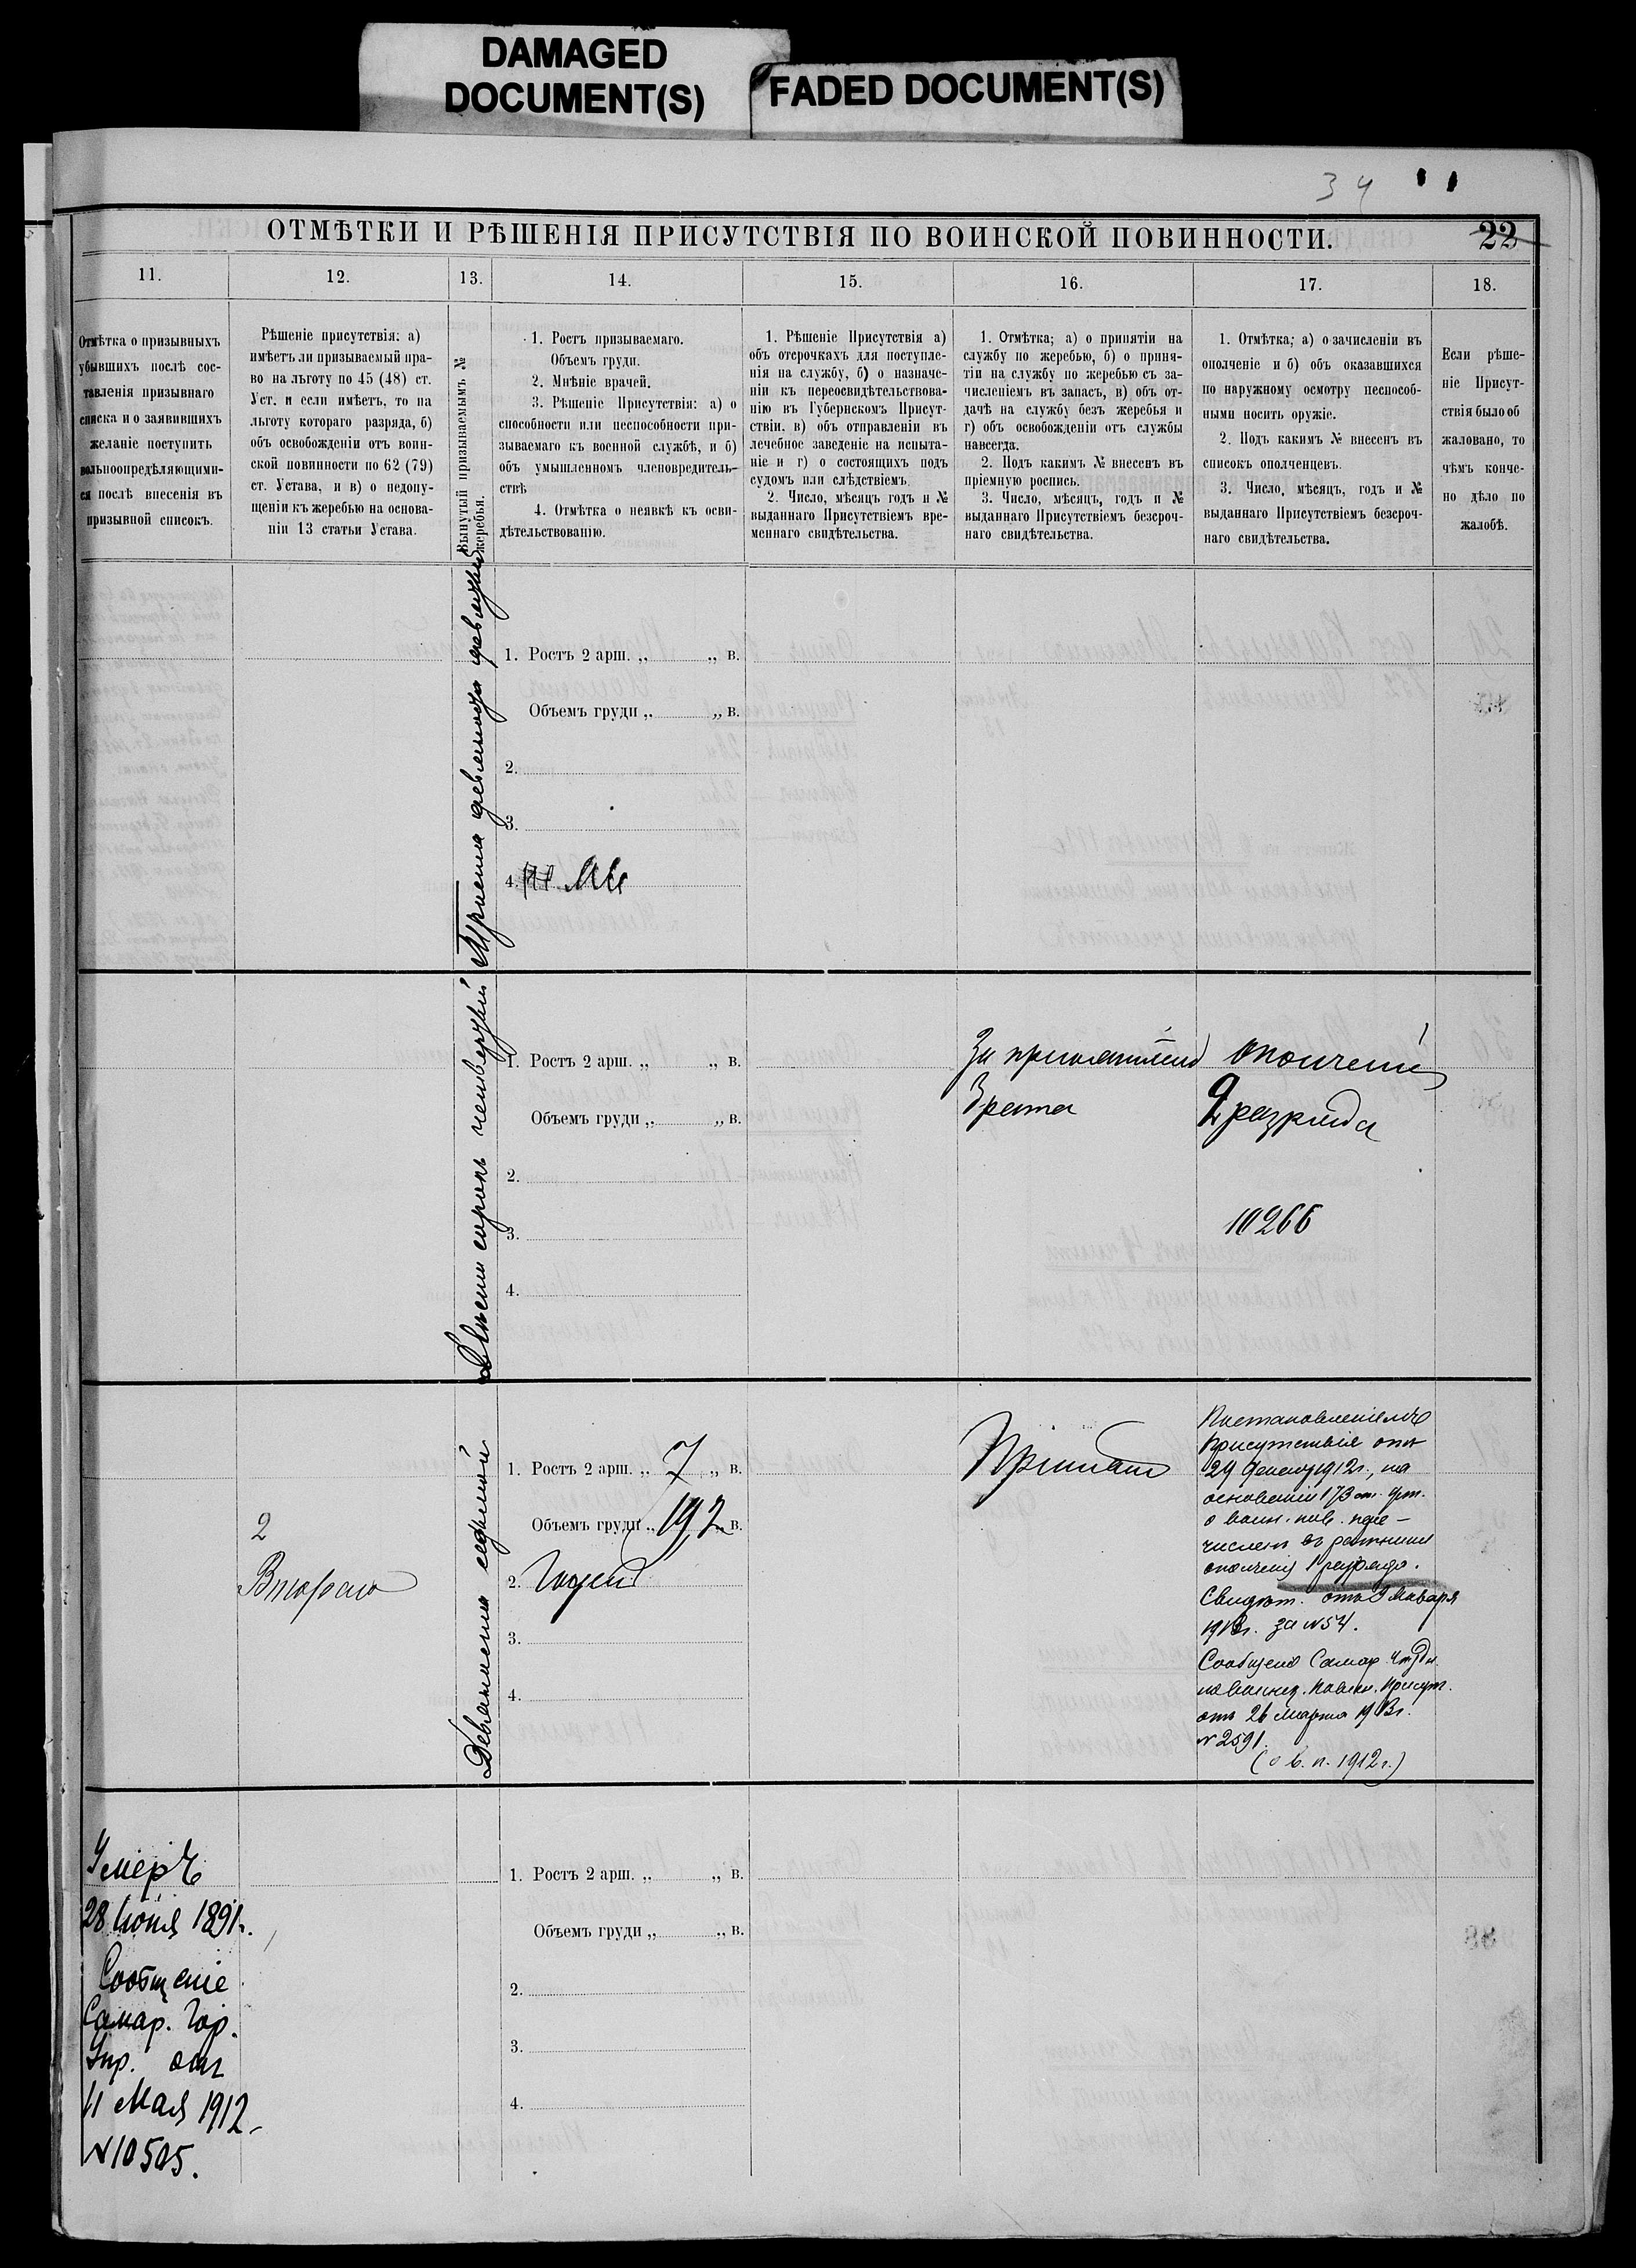 DAMAGED
DOCUMENT(S)
FADED DOCUMENT(S)
34
ОТМѢТКИ И РѢШЕНІЯ ПРИСУТСТВІЯ ПО ВОИНСКОЙ ПОВИННОСТИ.
22
11.
12.
13.
14.
15.
16.
17.
18.
Отмѣтка о призывныхъ
убывшихъ послѣ сос-
тавленія призывнаго
списка и о заявившихъ
желаніе поступить
вольноопредѣляющими-
ся послѣ внесенія въ
призывной списокъ.
Рѣшеніе присутствія: а)
имѣетъ ли призываемый пра-
во на льготу по 45 (48) ст.
Уст. и если имѣетъ, то на
льготу котораго разряда, б)
объ освобожденіи отъ воин-
ской повинности по 62 (79)
ст. Устава, и в) о недопу-
щеніи къ жеребью на основа-
ніи 13 статьи Устава.
Вынутый призываемымъ №
жеребья.
1. Ростъ призываемаго.
Объемъ груди.
2. Мнѣніе врачей.
3. Рѣшеніе Присутствія: а) о
способности или неспособности при-
зываемаго къ военной службѣ, и б)
объ умышленномъ членовредитель-
ствѣ
4. Отмѣтка о неявкѣ къ осви-
дѣтельствованію.
1. Рѣшеніе Присутствія а)
объ отсрочкахъ для поступле-
нія на службу, б) о назначе-
ніи къ переосвидѣтельствова-
нію въ Губернскомъ Присут-
ствіи, в) объ отправленіи въ
лечебное заведеніе на испыта-
ніе и г) о состоящихъ подъ
судомъ или слѣдствіемъ.
2. Число, мѣсяцъ годъ и №
выданнаго Присутствіемъ вре-
меннаго свидѣтельства.
1. Отмѣтка; а) о принятіи на
службу по жеребью, б) о приня-
тіи на службу по жеребью съ за-
численіемъ въ запасъ, в) объ от-
дачѣ на службу безъ жеребья и
г) объ освобожденіи отъ службы
навсегда.
2. Подъ какимъ № внесенъ въ
пріемную роспись.
3. Число, мѣсяцъ, годъ и №
выданнаго Присутствіемъ безсроч-
наго свидѣтельства.
1. Отмѣтка; а) о зачисленіи въ
ополченіе и б) объ оказавшихся
по наружному осмотру неспособ-
ными носить оружіе.
2. Подъ какимъ № внесенъ въ
списокъ ополченцевъ.
3. Число, мѣсяцъ, годъ и №
выданнаго Присутствіемъ безсроч-
наго свидѣтельства.
Если рѣше-
ніе Присут-
ствія было об
жаловано, то
чѣмъ конче-
но дѣло по
жалобѣ.
Триста девяносто девятый
1. Ростъ 2 арш. „ „ в.
Объемъ груди „ „ в.
2.
3.
4.
Двѣсти сорокъ четвертый
1. Ростъ 2 арш. „ „ в.
Объемъ груди „ „ в.
2.
3.
4.
За
брата
ополченіе
2 разряда
10266
2
Втораго
Девяносто седьмой
1. Ростъ 2 арш. „ 7 „ в.
Объемъ груди „ 19,2 „ в.
2. Годенъ
3.
4.
Принятъ
Постановленіемъ
Присутствія отъ
29 1912г., на
основаніи 173 ст. уст.
о воин. пов. пере-
численъ въ ратники
ополченія 1 разряда.
Свидѣт. отъ 9 Января
1913г. за №54.
Сообщено Самар.
по воинск. повин. Присут.
отъ 26 Марта 1913г.
№2591.
(о в. п. 1912г.)
Умеръ
28 Іюня 1891г.
Сообщеніе
Самар. Гор.
Упр. отъ
11 Мая 1912
№10505.
1. Ростъ 2 арш. „ „ в.
Объемъ груди „ „ в.
2.
3.
4.